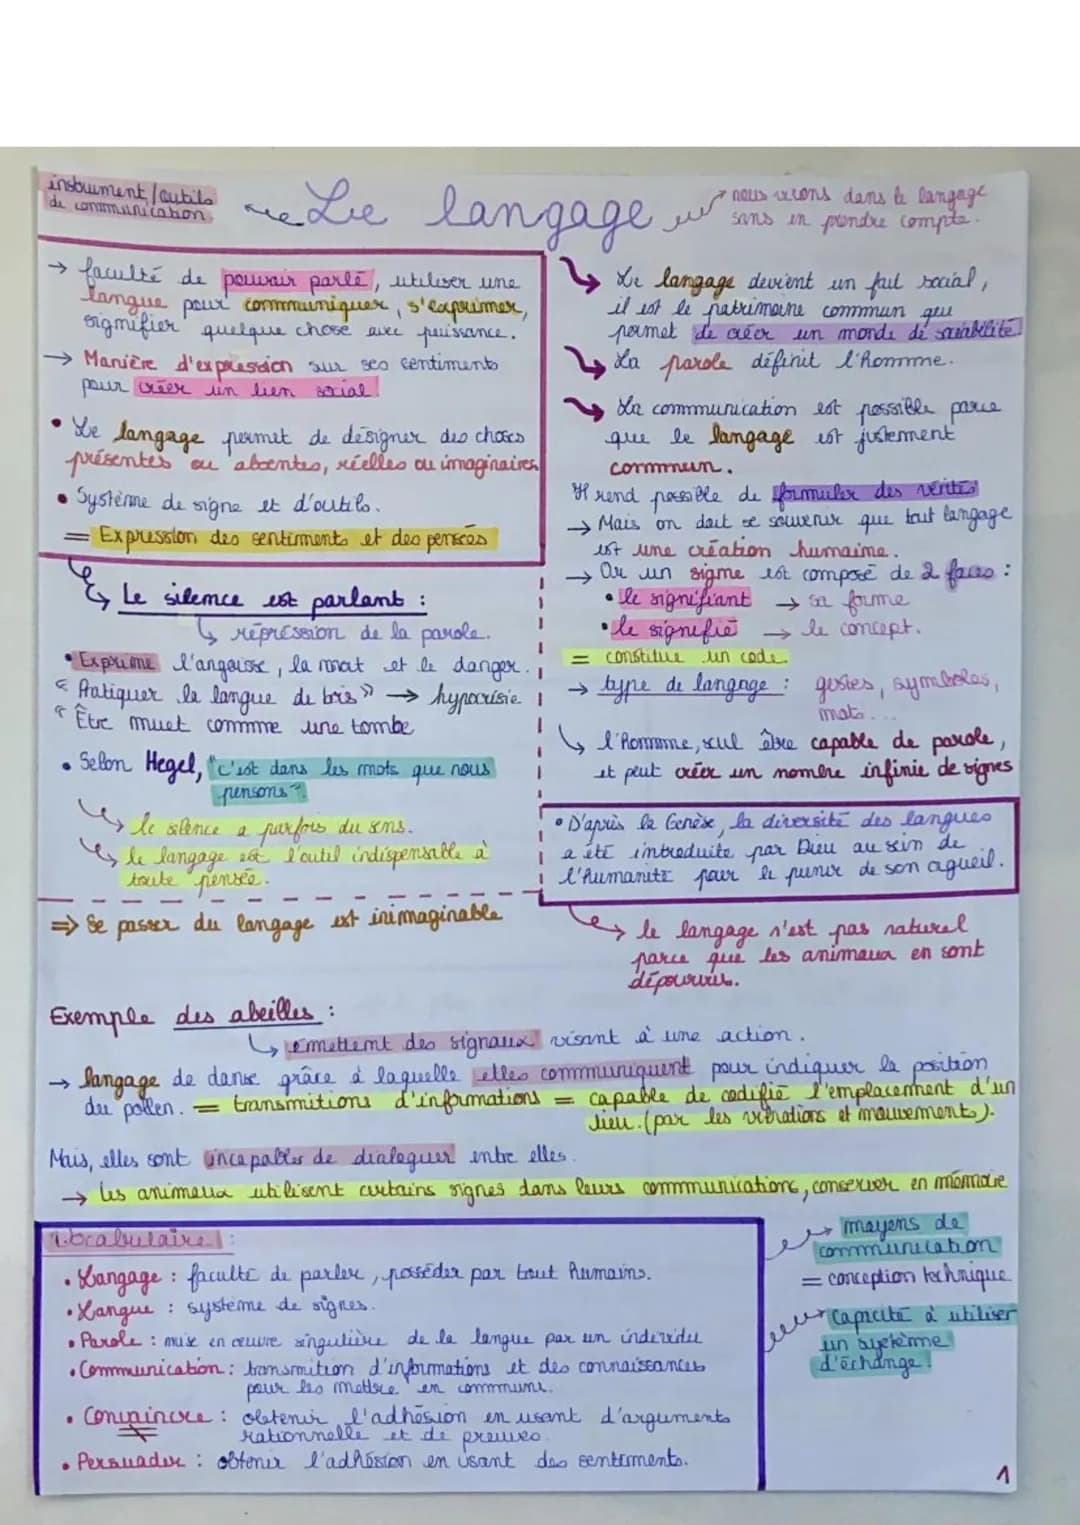 instrument/outils
de communication.
Le langage
nous vivons dans le langage
sans en prendre compte.
→ faculté de pouvoir parlé, utiliser une
langue pour communiquer, s'exprimer,
signifier quelque chose avec puissance.
→ Manière d'expression sur ses sentiments
pour créer un lien social.
• Le langage permet de désigner des choses
présentes ou absentes, réelles ou imaginaires
• Système de signe et d'outils.
= Expression des sentiments et des pensées
Le silence est parlant :
répression de la parole.
• Exprime l'angoisse, la mort et le danger.
"Pratiquer la langue de bois" → hypocrisie
"Être muet comme une tombe
• Selon Hegel, "c'est dans les mots que nous
pensons".
le silence a parfois du sens.
le langage est l'outil indispensable à
toute pensée.
⇒ Se passer du langage est inimaginable
Le langage devient un fait social,
il est le patrimoine commun qui
permet de créer un monde de sociabilité
La parole définit l'homme.
La communication est possible parce
que le langage est justement
commun.
Il rend possible de formuler des vérités
→ Mais on doit se souvenir que tout langage
est une création humaine.
→ Or un signe est composé de 2 faces :
• le signifiant → sa forme
• le signifié → le concept.
= constitue un code.
→ type de langage : gestes, symboles,
mots...
l'homme, seul être capable de parole,
et peut créer un nombre infinie de signes
• D'après la Genèse, la diversité des langues
a été introduite par Dieu au sein de
l'humanité pour le punir de son orgueil.
le langage n'est pas naturel
parce que les animaux en sont
dépourvus.
Exemple des abeilles :
émettent des signaux visant à une action.
→ langage de danse grâce à laquelle elles communiquent pour indiquer la position
du pollen. = transmitions d'informations = capable de codifié l'emplacement d'un
lieu. (par les vibrations et mouvements).
Mais, elles sont incapables de dialoguer entre elles.
→ les animaux utilisent curtains signes dans leurs communications, conserver en mémoire
moyens de
communication
= conception technique
Capacité à utiliser
un système
d'échange.
Vocabulaire :
• Langage : faculté de parler, posséder par tout humains.
• Langue : système de signes.
• Parole : mise en œuvre singulière de la langue par un individu
• Communication : transmition d'informations et des connaissances
pour les mettre en commun.
• Convaincre : obtenir l'adhésion en usant d'arguments
rationnelle et de preuves.
≠
• Persuader : obtenir l'adhésion en usant des sentiments.
1